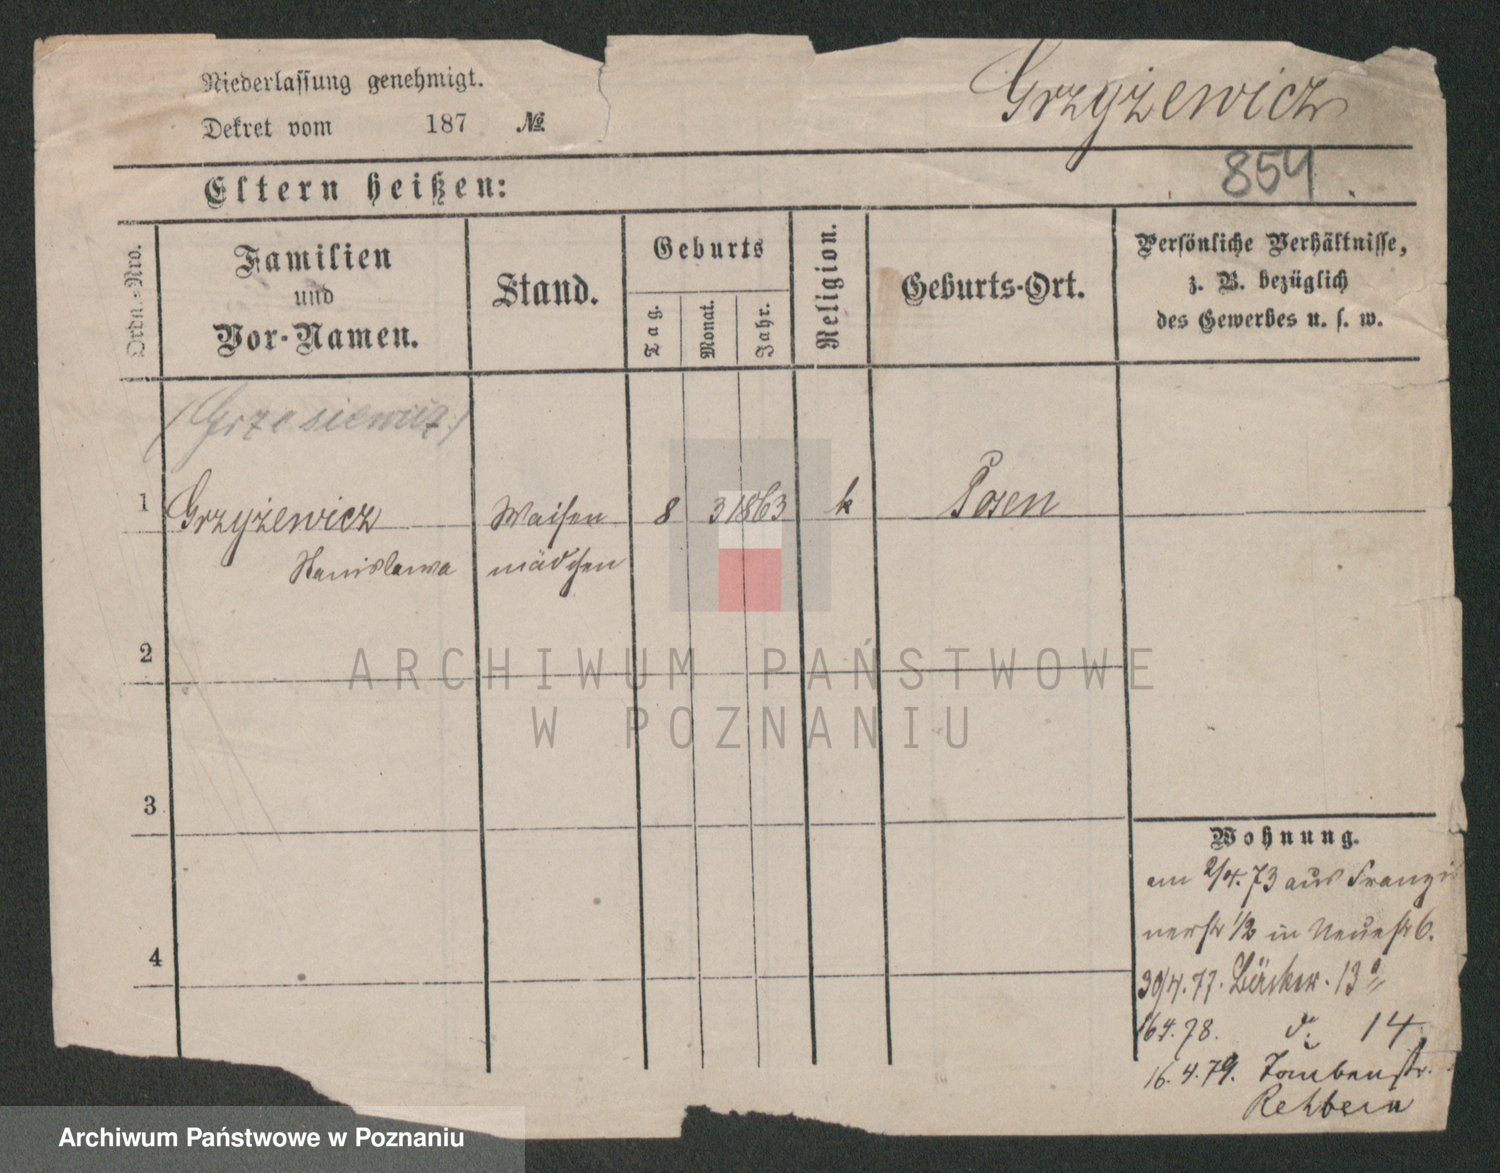 Niederlassung genehmigt.
Dekret vom 187 №
Grzyżewicz
Eltern heißen:
854
Ordn.-Nro.
Familien
und
Vor-Namen.
Stand.
Geburts
Tag.
Monat.
Jahr.
Religion.
Geburts-Ort.
Persönliche Verhältnisse,
z. B. bezüglich
des Gewerbes u. s. w.
(Grzesiewicz)
1 Grzyżewicz Waisen 8 3 1863 k Posen
Stanislawa mädchen
2
ARCHIWUM PAŃSTWOWE
W POZNANIU
3
Wohnung.
am 2/4. 73 aus Franzis
nerstr 1/2 in Neuestr 6.
4
30/4. 77. Bäcker. 13a
16 4. 78. do 14
16. 4. 79. Taubenstr.
Archiwum Państwowe w Poznaniu